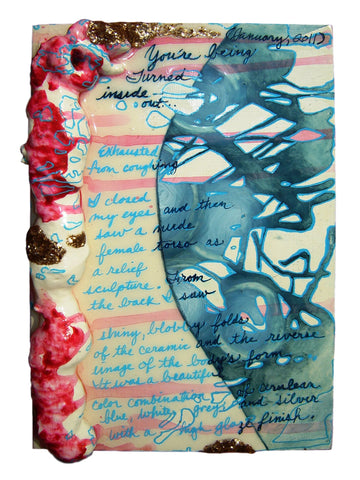 (January, 2011)
You're being
Turned
inside
out...
Exhausted
from coughing
I closed
my eyes and then
saw a nude
female torso as
a relief
sculpture. From
the back I saw
shiny, blobby folds
of the ceramic and the reverse
image of the body's form.
It was a beautiful
color combination of cerulean
blue, white, greys and silver
with a high glaze finish.